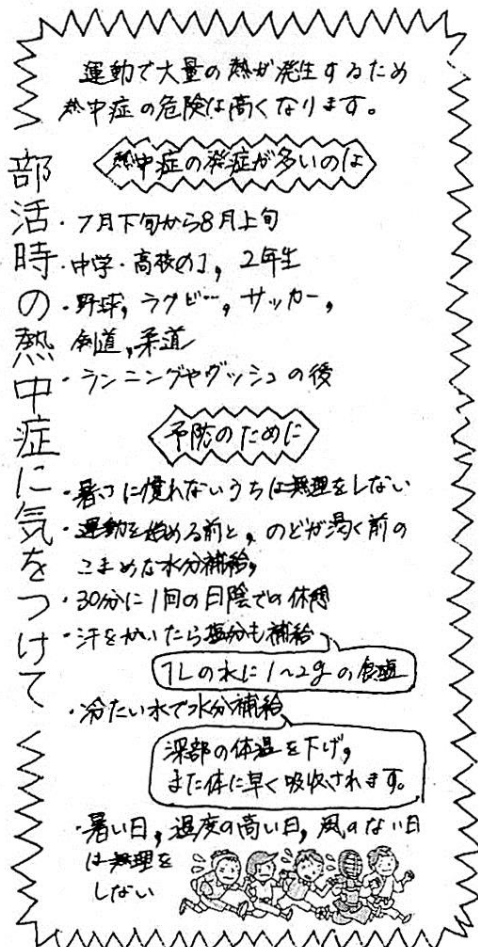 部活時の熱中症に気をつけて
運動で大量の熱が発生するため
熱中症の危険は高くなります。
熱中症の発症が多いのは
・7月下旬から8月上旬
・中学・高校の1，2年生
・野球，ラグビー，サッカー，
剣道，柔道
・ランニングやダッシュの後
予防のために
・暑さに慣れないうちは無理をしない
・運動を始める前と，のどが渇く前の
こまめな水分補給，
・30分に1回の日陰での休憩
・汗をかいたら塩分も補給
1Lの水に1~2gの食塩
・冷たい水で水分補給
深部の体温を下げ，
また体に早く吸収されます。
・暑い日，湿度の高い日，風のない日
は無理を
しない